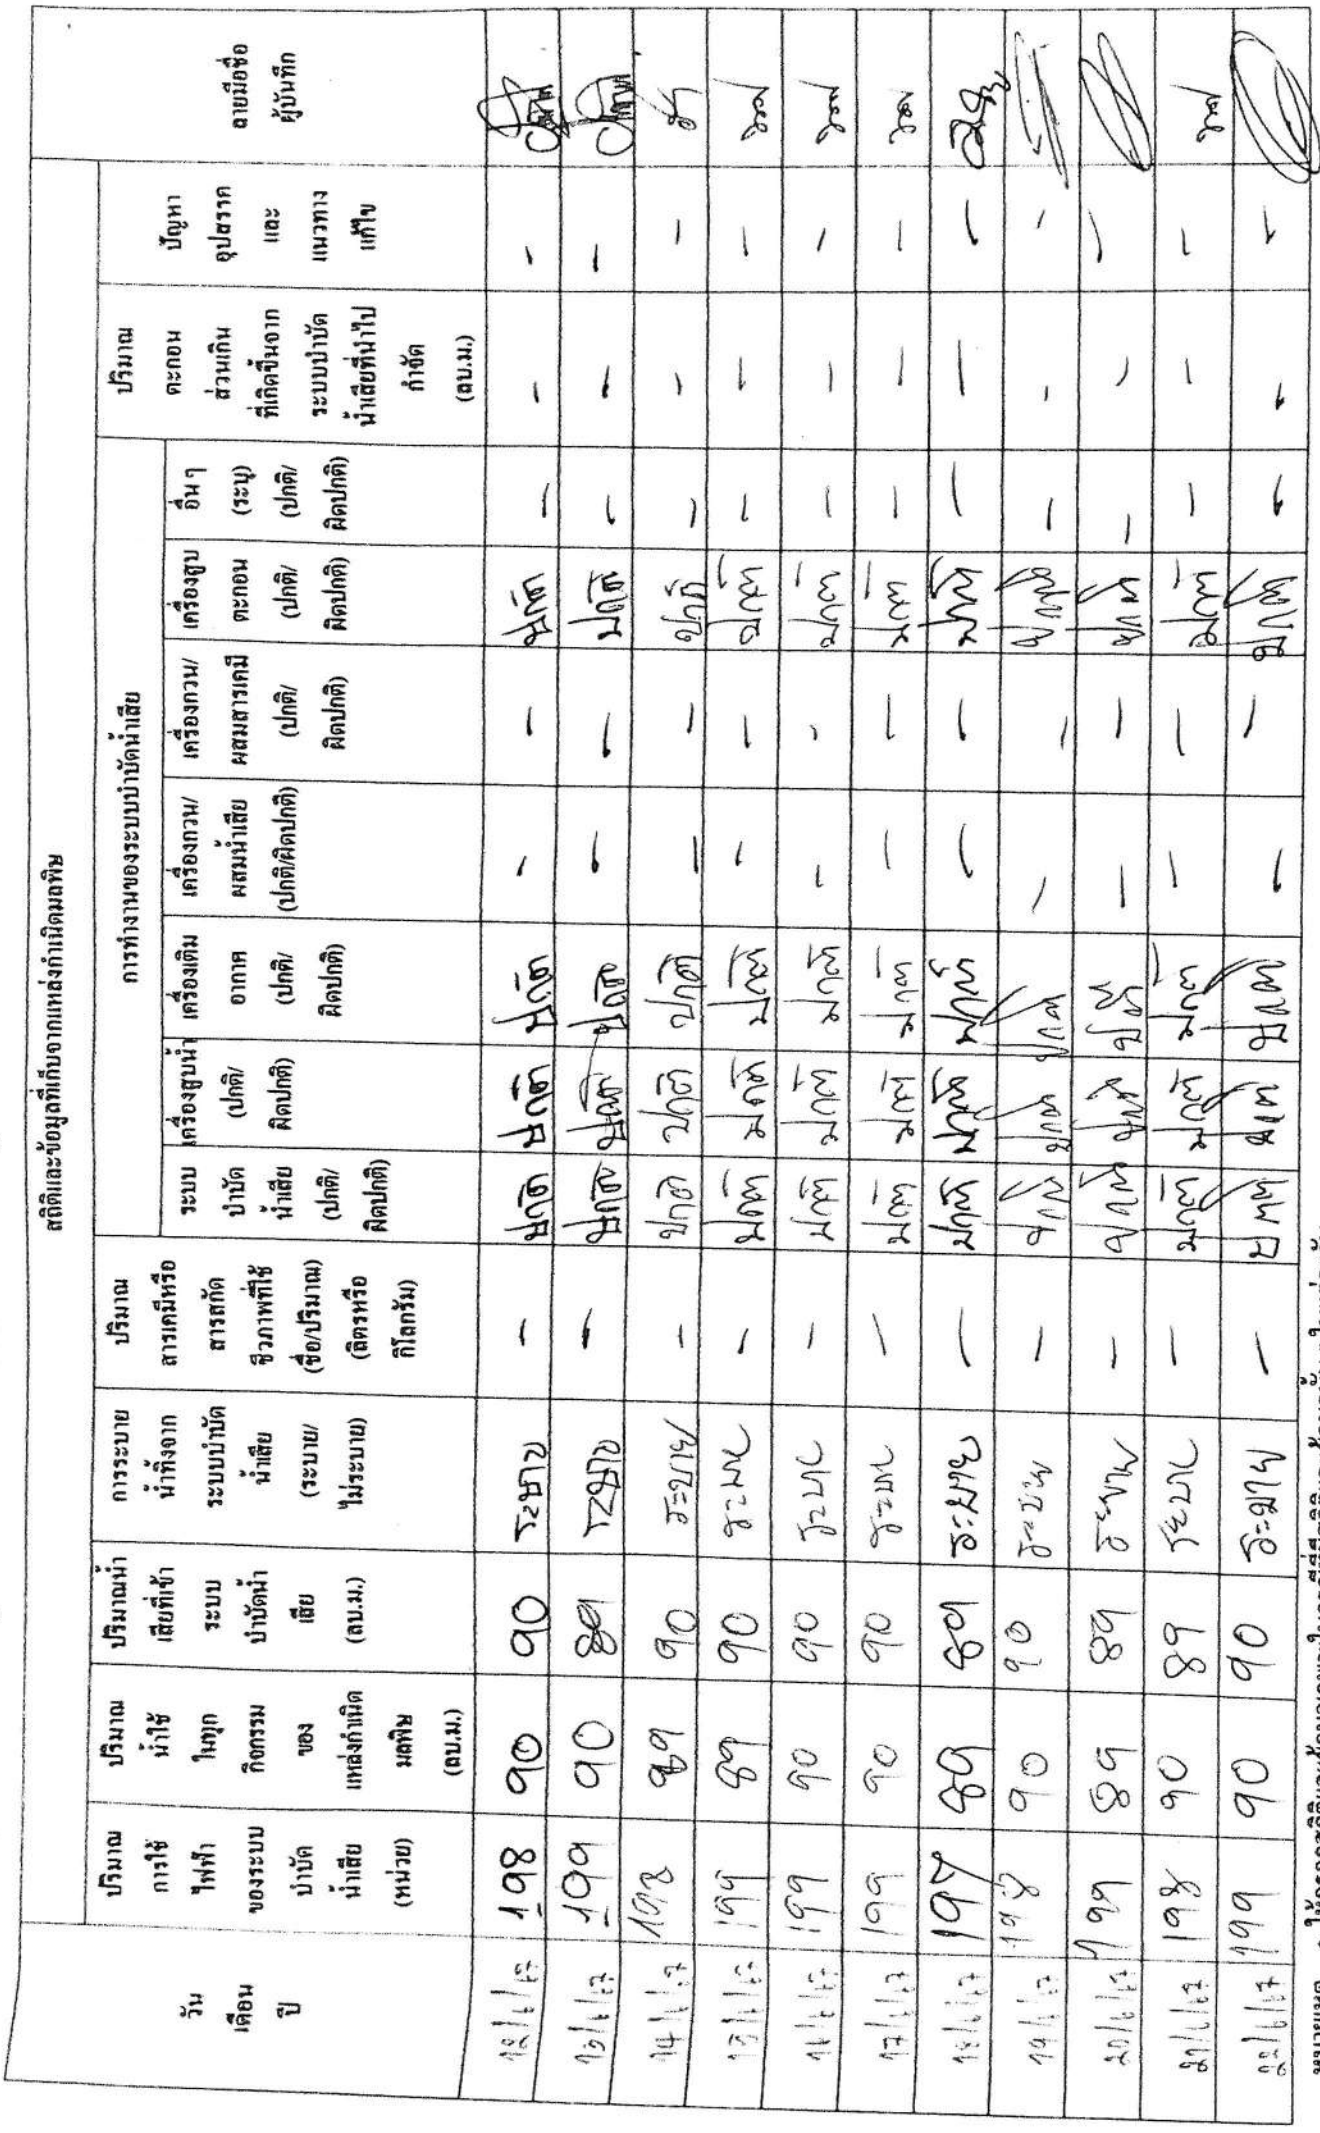 สถิติและข้อมูลที่เก็บจากแหล่งกำเนิดมลพิษ
วัน
เดือน
ปี
ปริมาณ
การใช้
ไฟฟ้า
ของระบบ
บำบัด
น้ำเสีย
(หน่วย)
ปริมาณ
น้ำใช้
ในทุก
กิจกรรม
ของ
แหล่งกำเนิด
มลพิษ
(ลบ.ม.)
ปริมาณน้ำ
เสียที่เข้า
ระบบ
บำบัดน้ำ
เสีย
(ลบ.ม.)
การระบาย
น้ำทิ้งจาก
ระบบบำบัด
น้ำเสีย
(ระบาย/
ไม่ระบาย)
ปริมาณ
สารเคมีหรือ
สารสกัด
ชีวภาพที่ใช้
(ชื่อ/ปริมาณ)
(ลิตรหรือ
กิโลกรัม)
การทำงานของระบบบำบัดน้ำเสีย
ระบบ
บำบัด
น้ำเสีย
(ปกติ/
ผิดปกติ)
เครื่องสูบน้ำ
(ปกติ/
ผิดปกติ)
เครื่องเติม
อากาศ
(ปกติ/
ผิดปกติ)
เครื่องกวน/
ผสมน้ำเสีย
(ปกติ/ผิดปกติ)
เครื่องกวน/
ผสมสารเคมี
(ปกติ/
ผิดปกติ)
เครื่องสูบ
ตะกอน
(ปกติ/
ผิดปกติ)
อื่น ๆ
(ระบุ)
(ปกติ/
ผิดปกติ)
ปริมาณ
ตะกอน
ส่วนเกิน
ที่เกิดขึ้นจาก
ระบบบำบัด
น้ำเสียที่นำไป
กำจัด
(ลบ.ม.)
ปัญหา
อุปสรรค
และ
แนวทาง
แก้ไข
ลายมือชื่อ
ผู้บันทึก
12/6/67 198 90 90 ระบาย - ปกติ ปกติ ปกติ - - ปกติ - - -
13/6/67 199 90 89 ระบาย - ปกติ ปกติ ปกติ - - ปกติ - - -
14/6/67 198 89 90 ระบาย - ปกติ ปกติ ปกติ - - ปกติ - - -
15/6/67 199 89 90 ระบาย - ปกติ ปกติ ปกติ - - ปกติ - - -
16/6/67 199 90 90 ระบาย - ปกติ ปกติ ปกติ - - ปกติ - - -
17/6/67 199 90 90 ระบาย - ปกติ ปกติ ปกติ - - ปกติ - - -
18/6/67 197 89 89 ระบาย - ปกติ ปกติ ปกติ - - ปกติ - - -
19/6/67 198 90 90 ระบาย - ปกติ ปกติ ปกติ - - ปกติ - - -
20/6/67 199 89 89 ระบาย - ปกติ ปกติ ปกติ - - ปกติ - - -
21/6/67 198 90 89 ระบาย - ปกติ ปกติ ปกติ - - ปกติ - - -
22/6/67 199 90 90 ระบาย - ปกติ ปกติ ปกติ - - ปกติ - - -